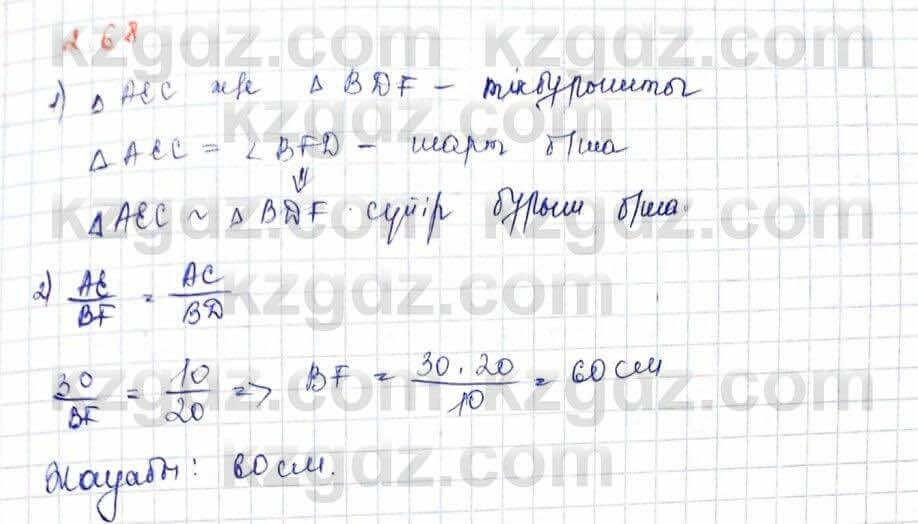 268
1) △AEC және △BDF – тікбұрышты
△AEC = ∠BFD – шарт б/ша
⇓
△AEC ~ △BDF сүйір бұрыш б/ша.
2) AE/BF = AC/BD
30/BF = 10/20 => BF = 30·20/10 = 60 см
Жауабы: 60 см.
kzgdz.com